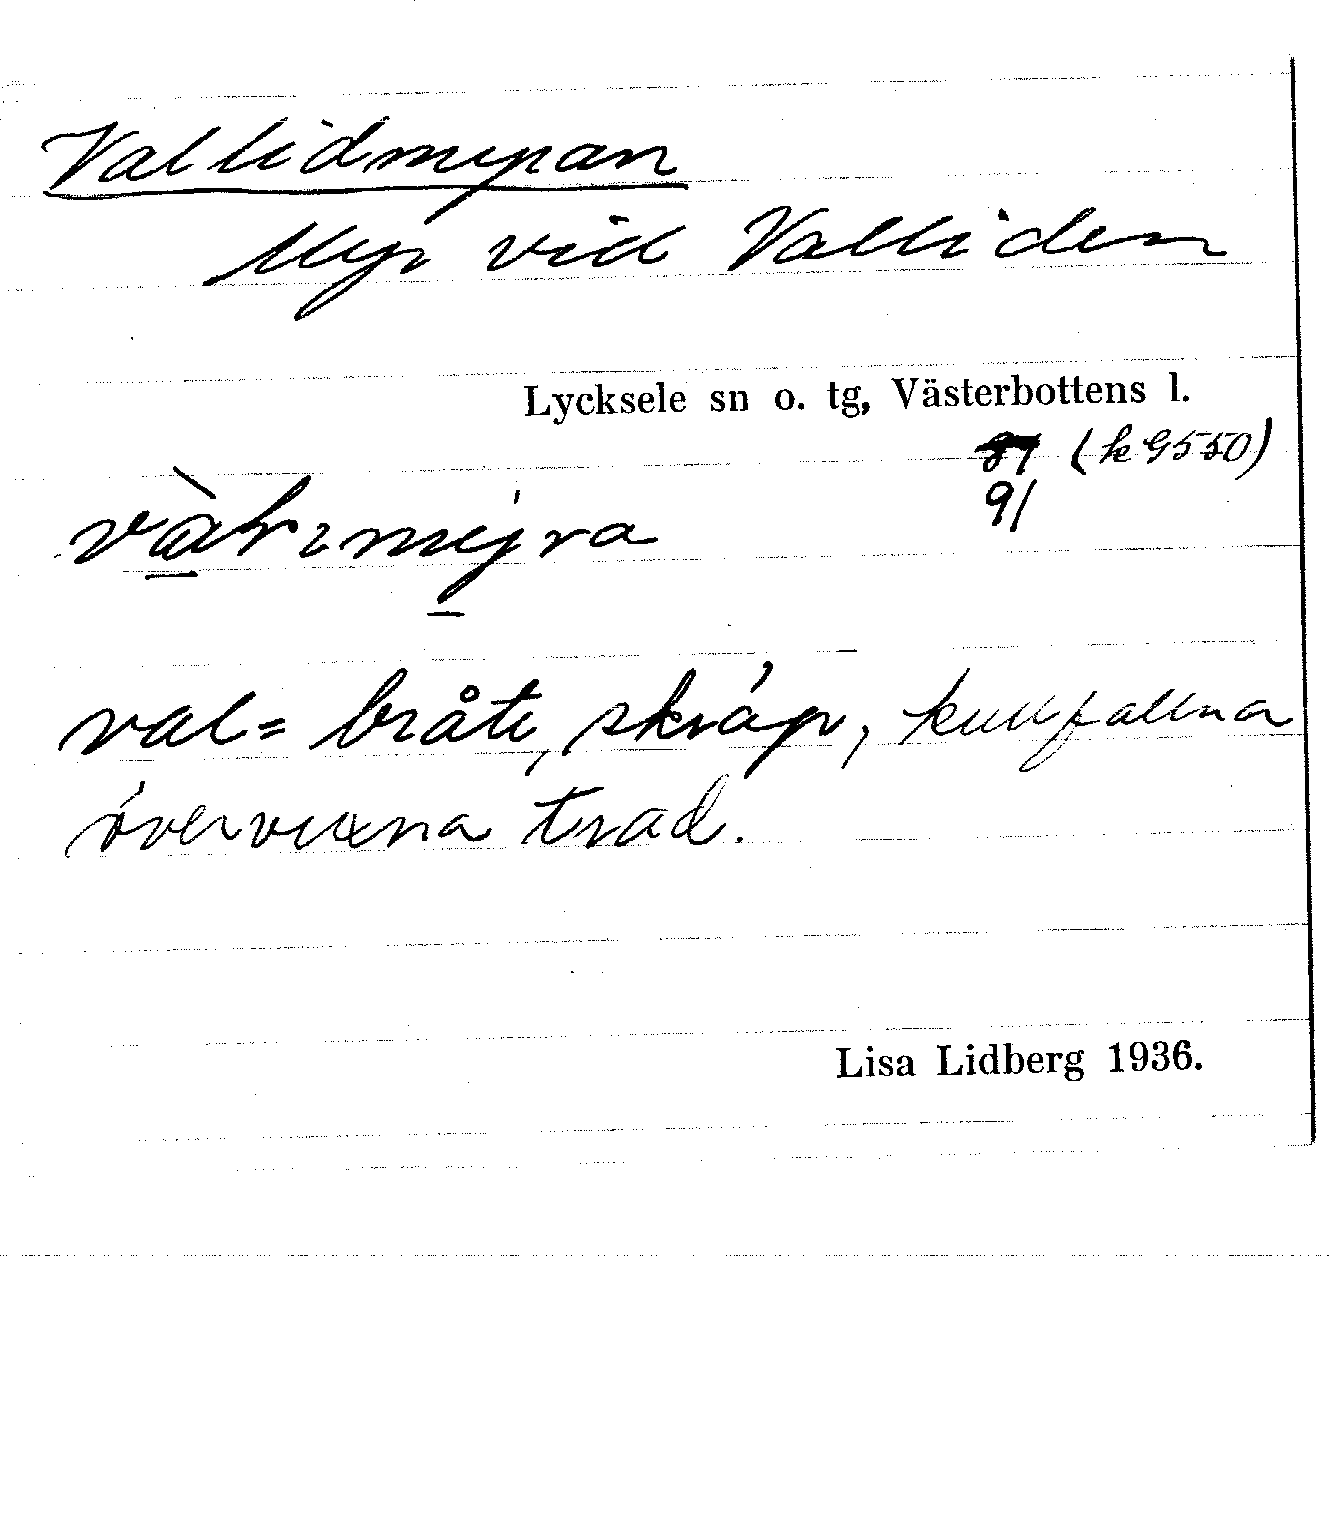 Vallidmyran
Myr vid Valliden
Lycksele sn o. tg, Västerbottens l.
87 (k 9550)
91
val = bråte, skräp, kullfallna
övervuxna träd.
Lisa Lidberg 1936.